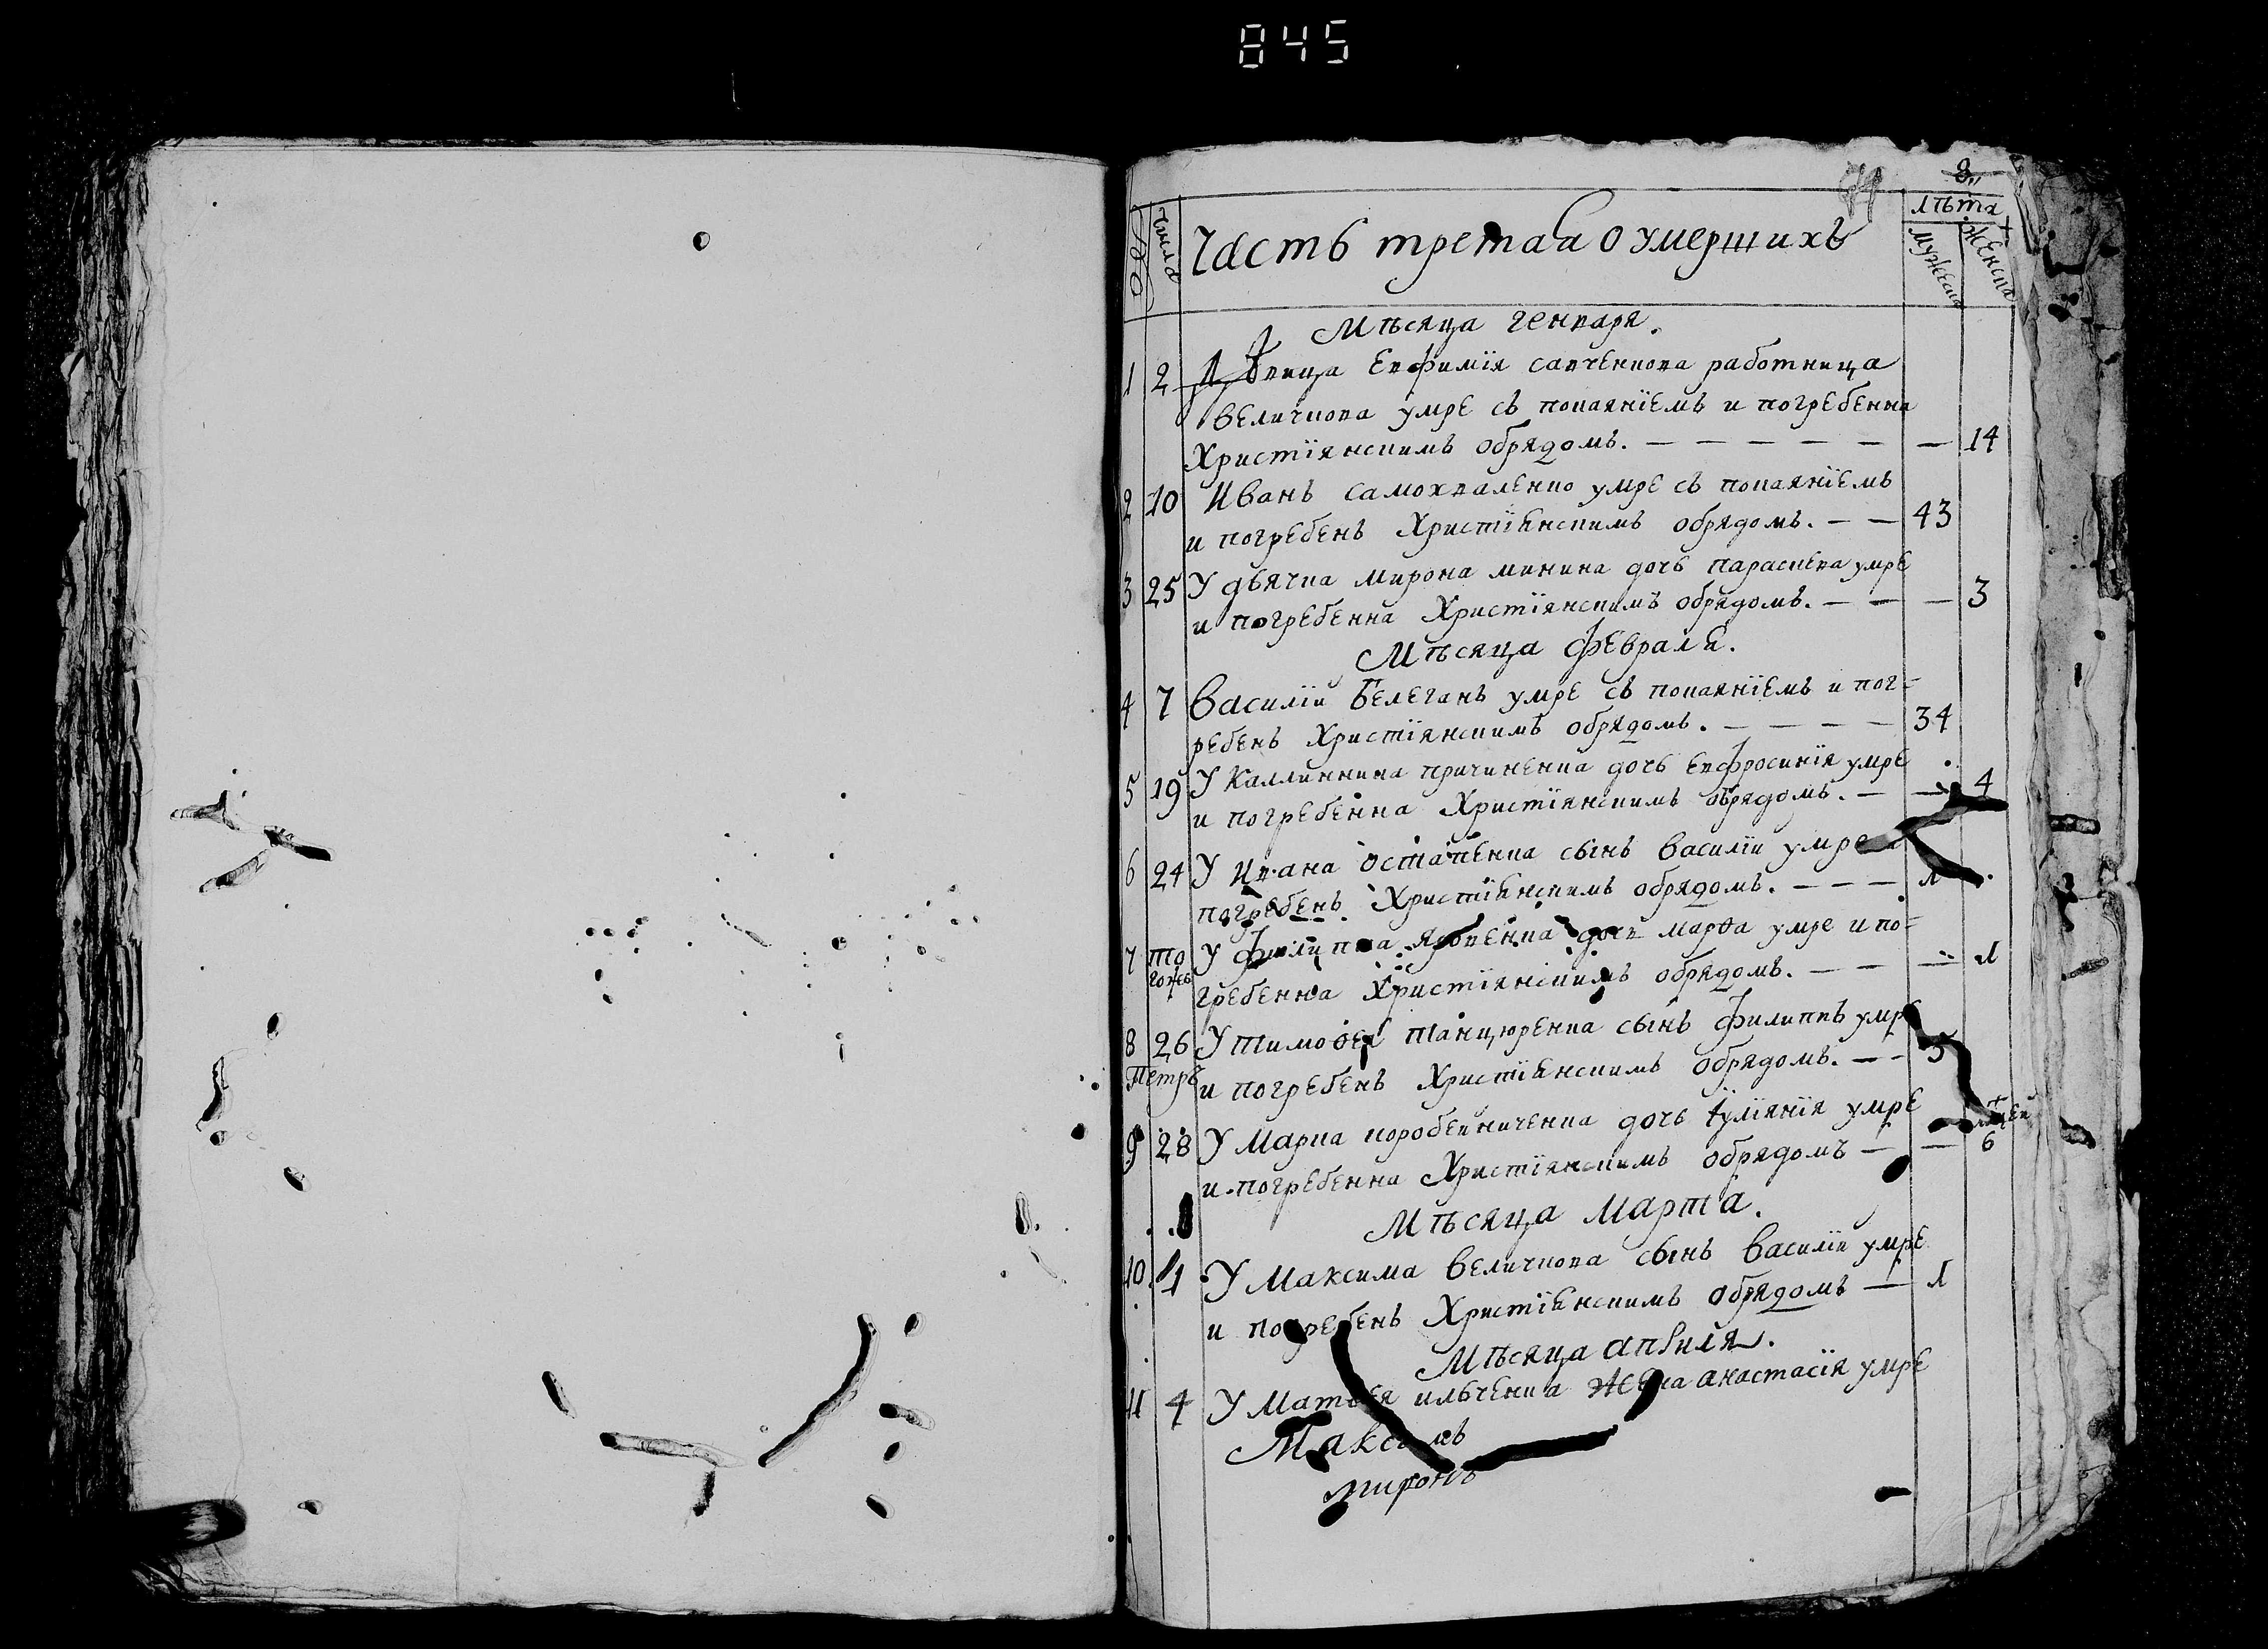 845
8.
Число
Часть третая о умершихъ
лѣта
мужеска
женска
Мѣсяца генваря.
1 2 Дѣвица Евфимїя савченкова работница
величкова умре съ покаянїемъ и погребенна
Христїянскимъ обрядомъ. — — — — — — 14
2 10 Иванъ самохваленко умре съ покаянїемъ
и погребенъ Христїянскимъ обрядомъ. — — 43
3 25 У дьячка мирона минина дочь параскева умре
и погребенна Христїянскимъ обрядомъ. — — — 3
Мѣсяца февраля.
4 7 Василїи Белеганъ умре съ покаянїемъ и пог-
ребенъ Христїянскимъ обрядомъ. — — — — 34
5 19 У Каллинника причиненка дочь евфросинїя умре
и погребенна Христїянскимъ обрядомъ. — — 4
6 24 У Ивана остапенка сынъ Василїи умре и
погребенъ Христїянскимъ обрядомъ. — — — 1
7 того жъ У Филиппа яковенка дочь марѳа умре и по-
гребенна Христїянскимъ обрядомъ. — — — 1
8 26 У тимоѳея танцюренка сынъ филиппъ умре
Петръ и погребенъ Христїянскимъ обрядомъ. — — 5
9 28 У Марка коробейниченка дочь їулїянїя умре
и погребенна Христїянскимъ обрядомъ — — 6
Мѣсяца Марта.
10 1 У Максима Величкова сынъ Василїи умре
и погребенъ Христїянскимъ обрядомъ — 1
Мѣсяца априля.
11 4 У Матѳея ильченка жена анастасїя умре
Максимъ
миронъ